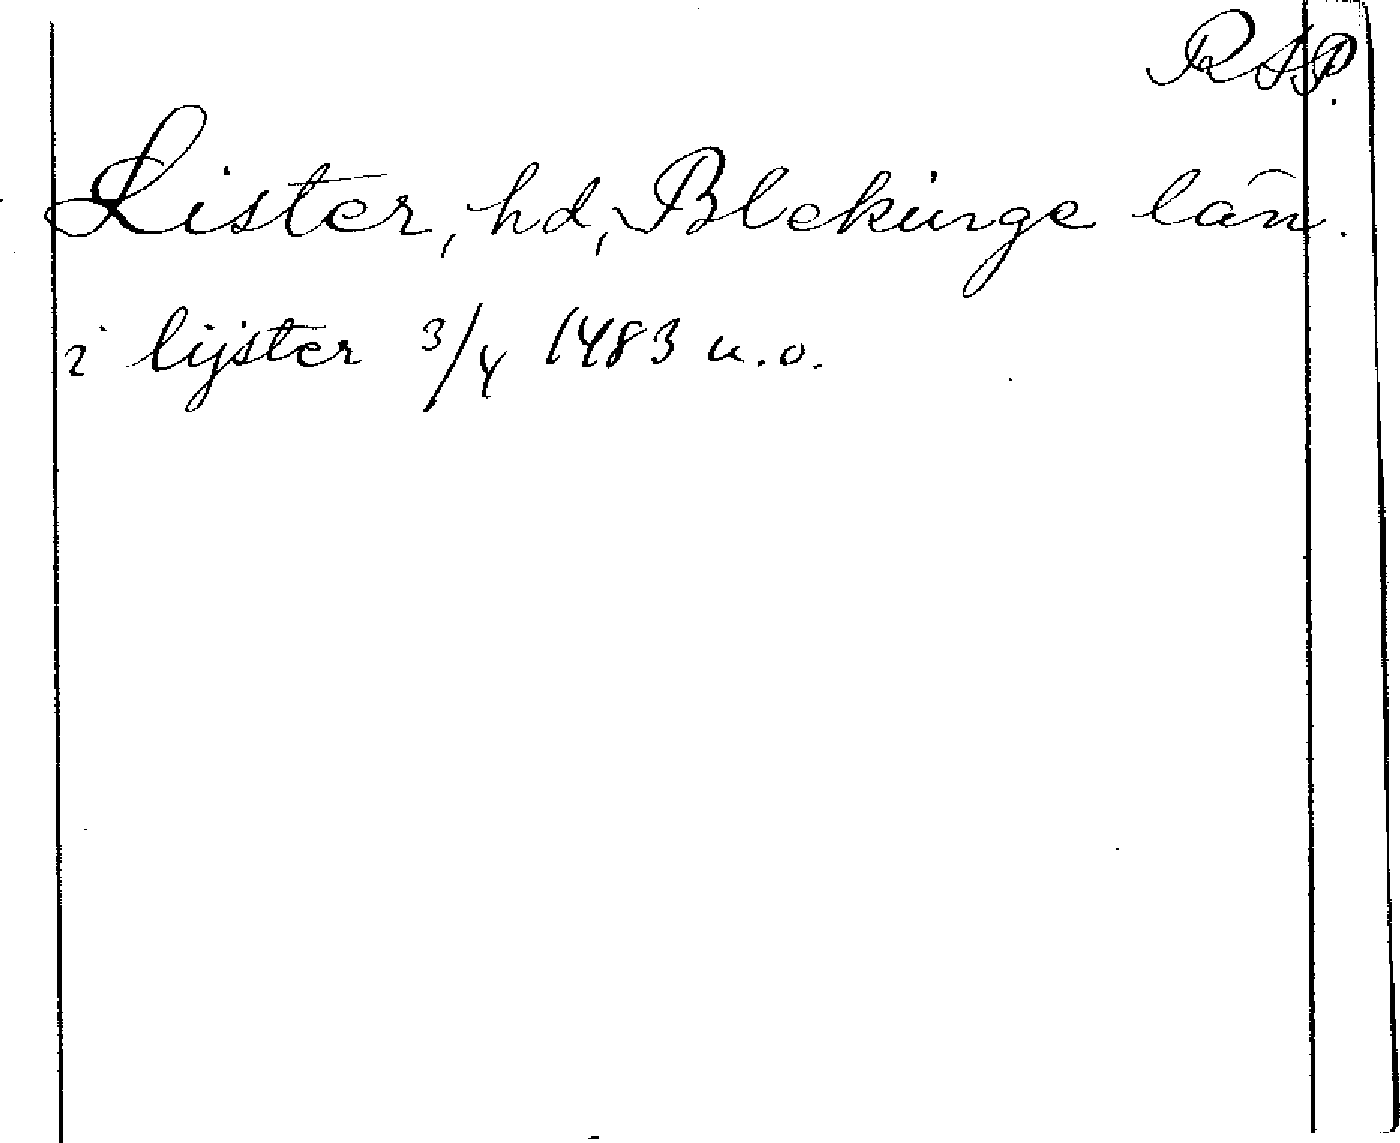 RSP.
Lister, hd, Blekinge län.
i lijster 3/4 1483 u.o.